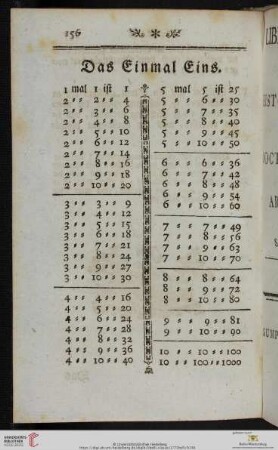 156
Das Einmal Eins.
1 mal 1 ist 1
2 = = 2 = = 4
2 = = 3 = = 6
2 = = 4 = = 8
2 = = 5 = = 10
2 = = 6 = = 12
2 = = 7 = = 14
2 = = 8 = = 16
2 = = 9 = = 18
2 = = 10 = = 20
3 = = 3 = = 9
3 = = 4 = = 12
3 = = 5 = = 15
3 = = 6 = = 18
3 = = 7 = = 21
3 = = 8 = = 24
3 = = 9 = = 27
3 = = 10 = = 30
4 = = 4 = = 16
4 = = 5 = = 20
4 = = 6 = = 24
4 = = 7 = = 28
4 = = 8 = = 32
4 = = 9 = = 36
4 = = 10 = = 40
5 mal 5 ist 25
5 = = 6 = = 30
5 = = 7 = = 35
5 = = 8 = = 40
5 = = 9 = = 45
5 = = 10 = = 50
6 = = 6 = = 36
6 = = 7 = = 42
6 = = 8 = = 48
6 = = 9 = = 54
6 = = 10 = = 60
7 = = 7 = = 49
7 = = 8 = = 56
7 = = 9 = = 63
7 = = 10 = = 70
8 = = 8 = = 64
8 = = 9 = = 72
8 = = 10 = = 80
9 = = 9 = = 81
9 = = 10 = = 90
10 = = 10 = = 100
10 = = 100 = = 1000
LIB
IST
OCT
SUMP